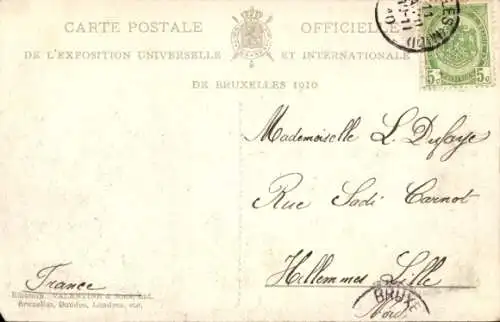 CARTE POSTALE OFFICIELLE
DE L'EXPOSITION UNIVERSELLE ET INTERNATIONALE
DE BRUXELLES 1910
5c 5c
Mademoiselle L. Dufaye
Rue Sadi Carnot
Hellemmes Lille
Nord
France
VALENTINE & Sons, Ltd.
Bruxelles, Dundee, Londres, etc.
BRUXE